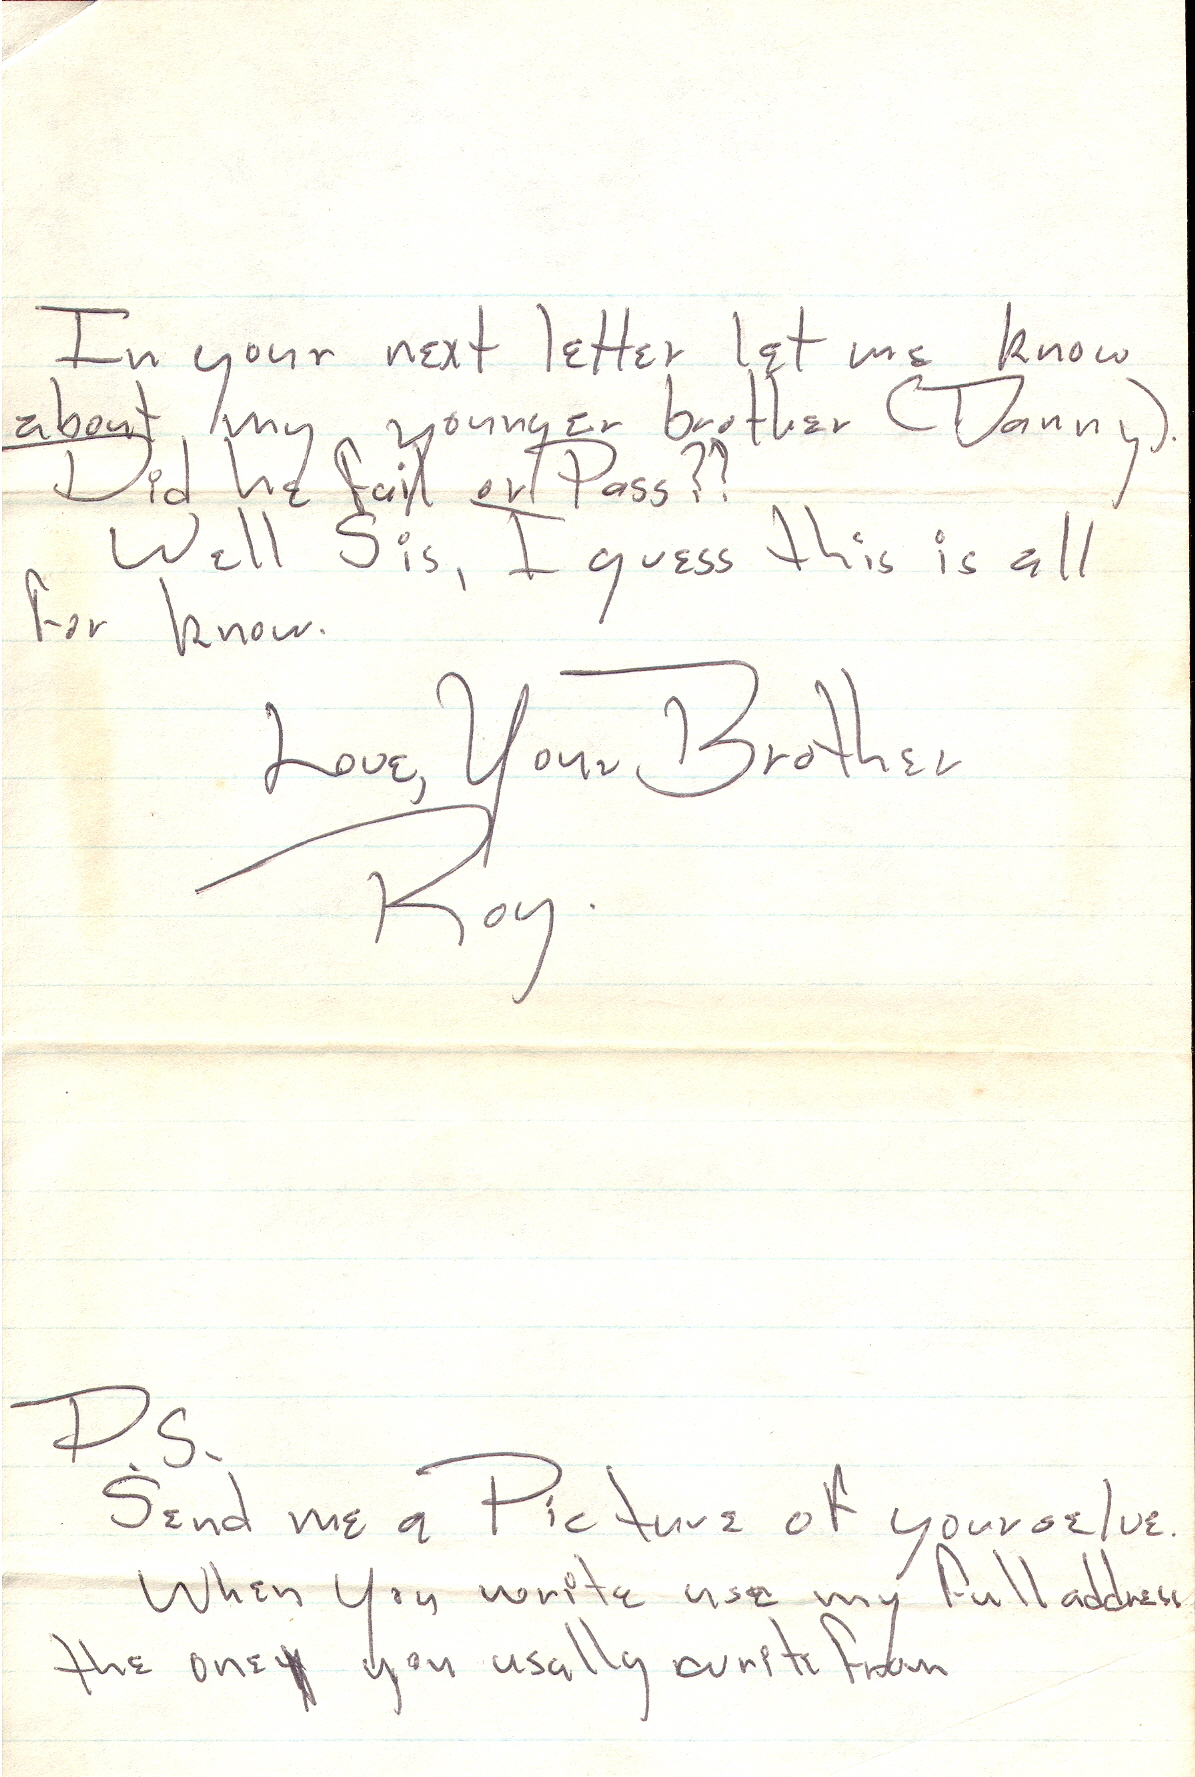 In your next letter let me know
about my younger brother (Danny).
Did he fail or Pass??
Well Sis, I guess this is all
for know.
Love, Your Brother
Roy.
P.S.
Send me a Picture of yourselve.
When you write use my full address
the one you usally write from